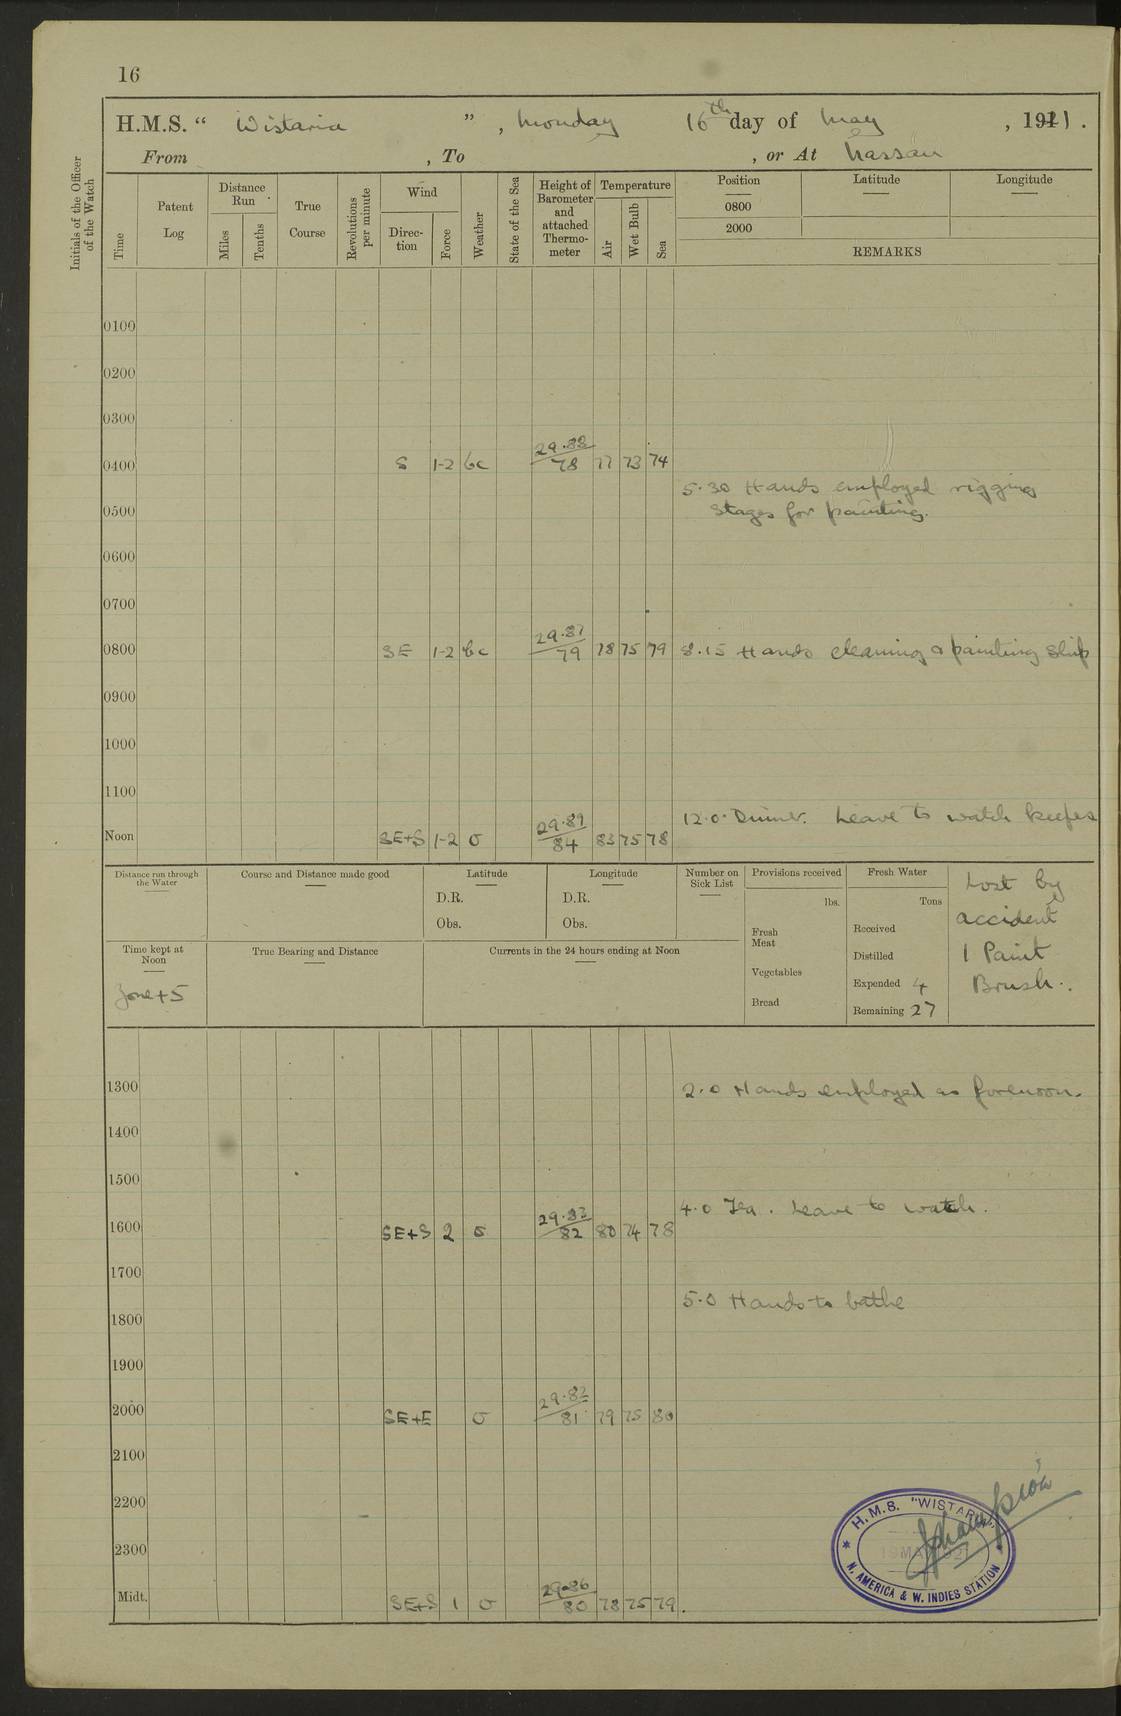 16
H.M.S. " Wistaria " , Monday 16th day of May , 1921 .
From , To , or At Nassau
Initials of the Officer of the Watch
Time
Patent Log
Distance Run
Miles
Tenths
True Course
Revolutions per minute
Wind
Direc-tion
Force
Weather
State of the Sea
Height of Barometer and attached Thermo-meter
Temperature
Air
Wet Bulb
Sea
Position
Latitude
Longitude
0800
2000
REMARKS
0100
0200
0300
0400 S 1-2 bc 29.88 78 77 73 74
5.30 Hands employed rigging
stages for painting.
0500
0600
0700
0800 SE 1-2 bc 29.87 79 78 75 79 8.15 Hands cleaning & painting ship
0900
1000
1100
12.0. Dinner. Leave to watch keepers
Noon SE+S 1-2 o 29.89 84 83 75 78
Distance run through the Water
Course and Distance made good
Latitude
D.R.
Obs.
Longitude
D.R.
Obs.
Number on Sick List
Provisions received
lbs.
Fresh Meat
Vegetables
Bread
Fresh Water
Tons
Received
Distilled
Expended 4
Remaining 27
Lost by
accident
1 Paint
Brush.
Time kept at Noon
Zone+5
True Bearing and Distance
Currents in the 24 hours ending at Noon
1300 2.0 Hands employed as forenoon.
1400
1500
4.0 Tea. Leave to watch.
1600 SE+S 2 o 29.83 82 80 74 78
1700
5.0 Hands to bathe
1800
1900
2000 SE+E o 29.82 81 79 75 80
2100
2200
2300
Midt. SE+S 1 o 29.86 80 78 75 79
H.M.S. "WISTARIA"
MAY 1921
N. AMERICA & W. INDIES STATION